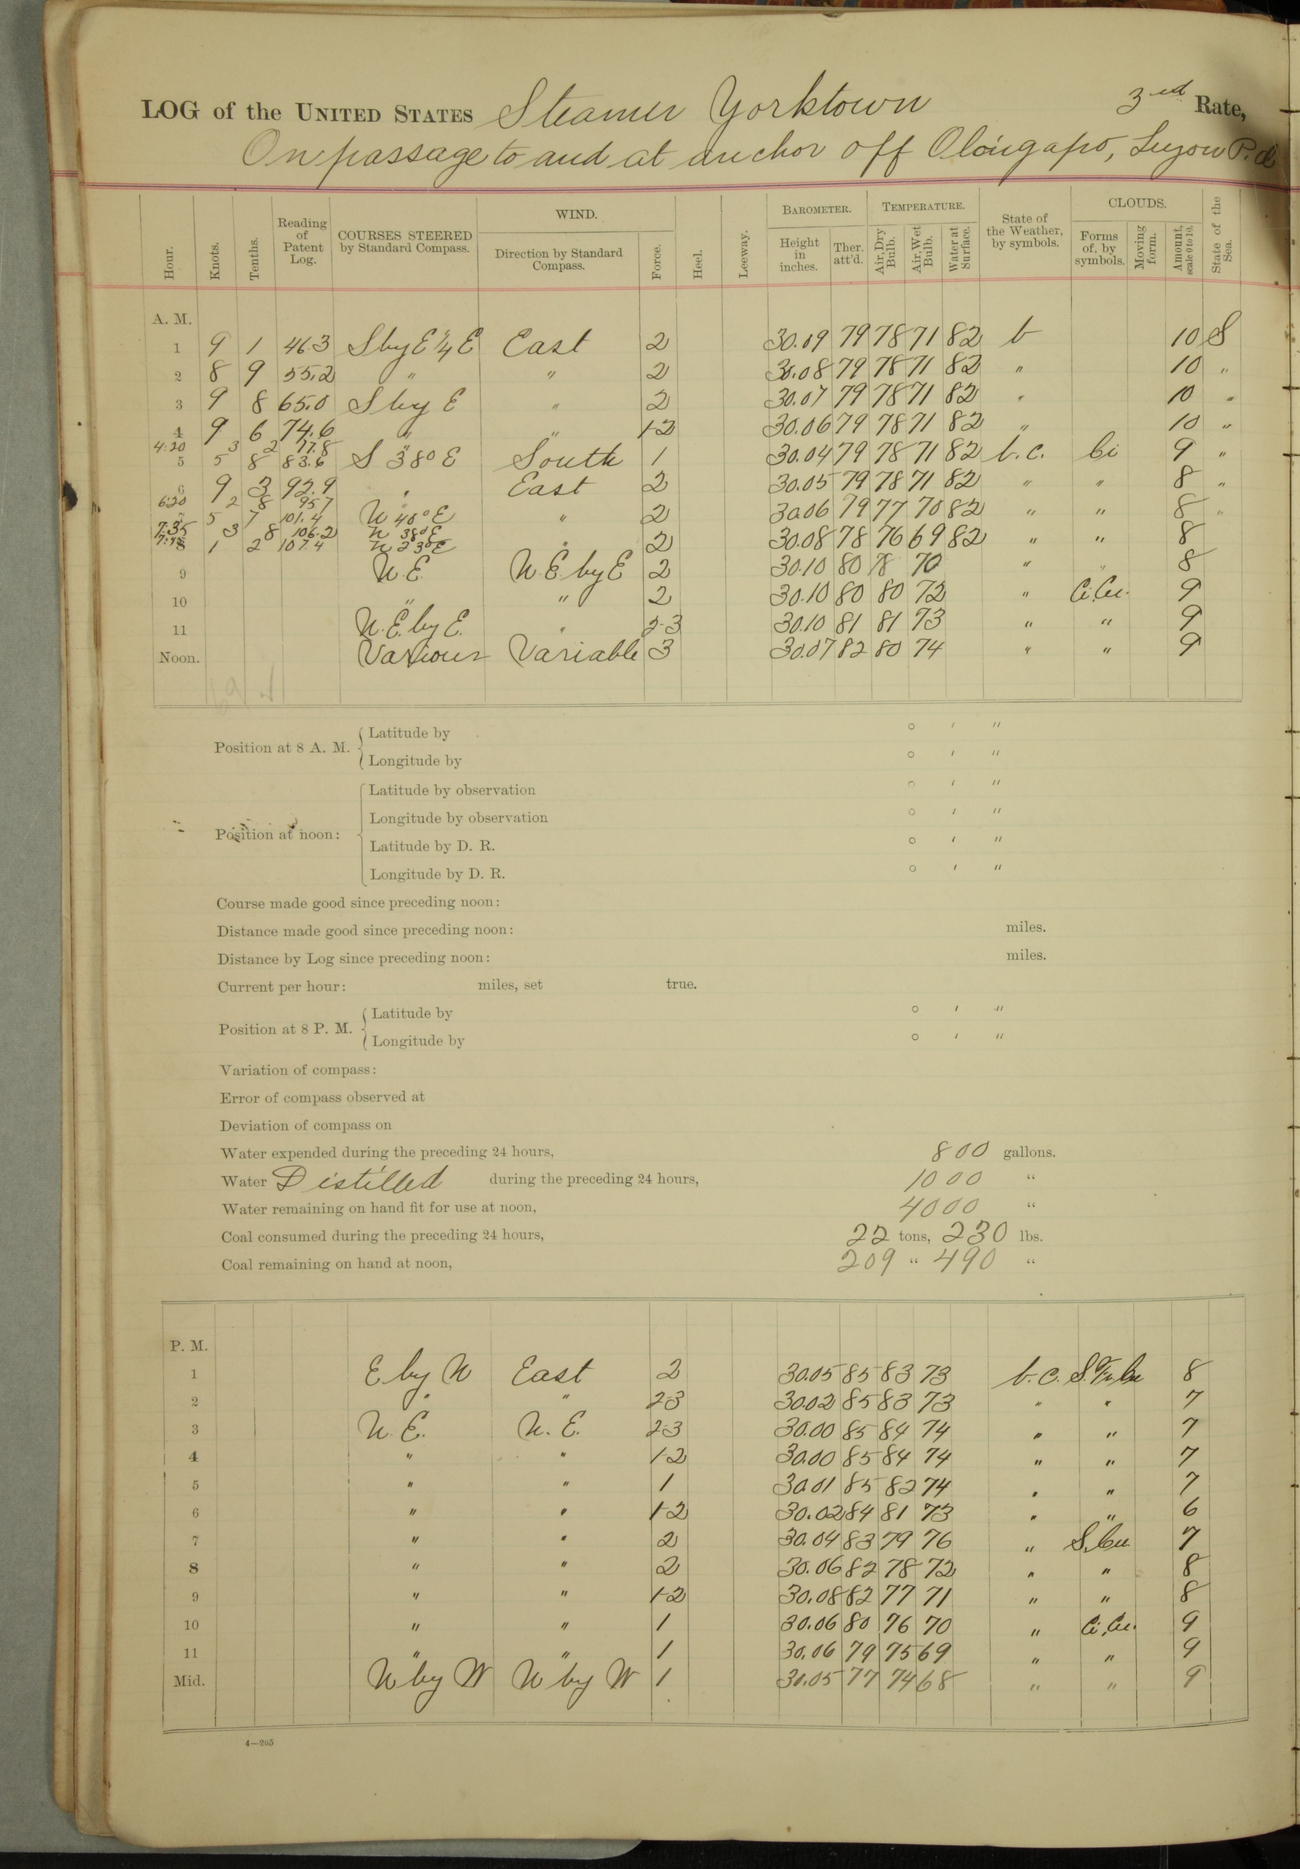 LOG of the UNITED STATES Steamer Yorktown 3rd Rate,
On passage to and at anchor off Olongapo, Luzon P.I.
Hour. Knots. Tenths. Reading of Patent Log. COURSES STEERED by Standard Compass. WIND. Direction by Standard Compass. Force. Heel. Leeway. BAROMETER. Height in inches. Ther. att'd. TEMPERATURE. Air, Dry Bulb. Air, Wet Bulb. Water at Surface. State of the Weather, by symbols. CLOUDS. Forms of, by symbols. Moving form. Amount, scale 0 to 10. State of the Sea.
A. M.
1 9 1 46.3 S by E ¼ E East 2 30.09 79 78 71 82 b 10 S
2 8 9 55.2 " " 2 30.08 79 78 71 82 " 10 "
3 9 8 65.0 S by E " 2 30.07 79 78 71 82 " 10 "
4 9 6 74.6 " " 1-2 30.06 79 78 71 82 " 10 "
4:20 3 2 77.8 "
5 5 8 83.6 S 38° E South 1 30.04 79 78 71 82 b.c. Ci 9 "
6 9 3 92.9 " East 2 30.05 79 78 71 82 " " 8 "
6:20 2 8 95.7 "
7 5 7 101.4 N 40° E " 2 30.06 79 77 70 82 " " 8 "
7:35 3 8 106.2 N 38° E
8 1 2 107.4 N 23° E " 2 30.08 78 76 69 82 " " 8
9 N.E. N.E. by E 2 30.10 80 78 70 " " 8
10 " " 2 30.10 80 80 72 " Ci.Cu. 9
11 N.E. by E. " 2-3 30.10 81 81 73 " " 9
Noon. Various Variable 3 30.07 82 80 74 " " 9
Position at 8 A. M. Latitude by ° ′ ″
Longitude by ° ′ ″
Position at noon: Latitude by observation ° ′ ″
Longitude by observation ° ′ ″
Latitude by D. R. ° ′ ″
Longitude by D. R. ° ′ ″
Course made good since preceding noon:
Distance made good since preceding noon: miles.
Distance by Log since preceding noon: miles.
Current per hour: miles, set true.
Position at 8 P. M. Latitude by ° ′ ″
Longitude by ° ′ ″
Variation of compass:
Error of compass observed at
Deviation of compass on
Water expended during the preceding 24 hours, 800 gallons.
Water Distilled during the preceding 24 hours, 1000 "
Water remaining on hand fit for use at noon, 4000 "
Coal consumed during the preceding 24 hours, 22 tons, 230 lbs.
Coal remaining on hand at noon, 209 " 490 "
P. M.
1 E by N East 2 30.05 85 83 73 b.c. 8
2 " " 2-3 30.02 85 83 73 " " 7
3 N.E. N.E. 2-3 30.00 85 84 74 " " 7
4 " " 1-2 30.00 85 84 74 " " 7
5 " " 1 30.01 85 82 74 " " 7
6 " " 1-2 30.02 84 81 73 " " 6
7 " " 2 30.04 83 79 76 " S.Cu 7
8 " " 2 30.06 82 78 72 " " 8
9 " " 1-2 30.08 82 77 71 " " 8
10 " " 1 30.06 80 76 70 " Ci.Cu. 9
11 " " 1 30.06 79 75 69 " " 9
Mid. N by W N by W 1 30.05 77 74 68 " " 9
4—205